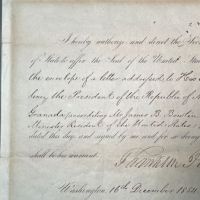 I hereby authorize and direct the Secre
of State to affix the Seal of the United Stat
the envelope of a letter addressed to His E
lency the President of the Republic of N
Granada, Mr James B. Bowlin
Minister Resident of the United States
dated this day and signed by me and for so doing
shall be his warrant.
Franklin P
Washington, 16th December 1854